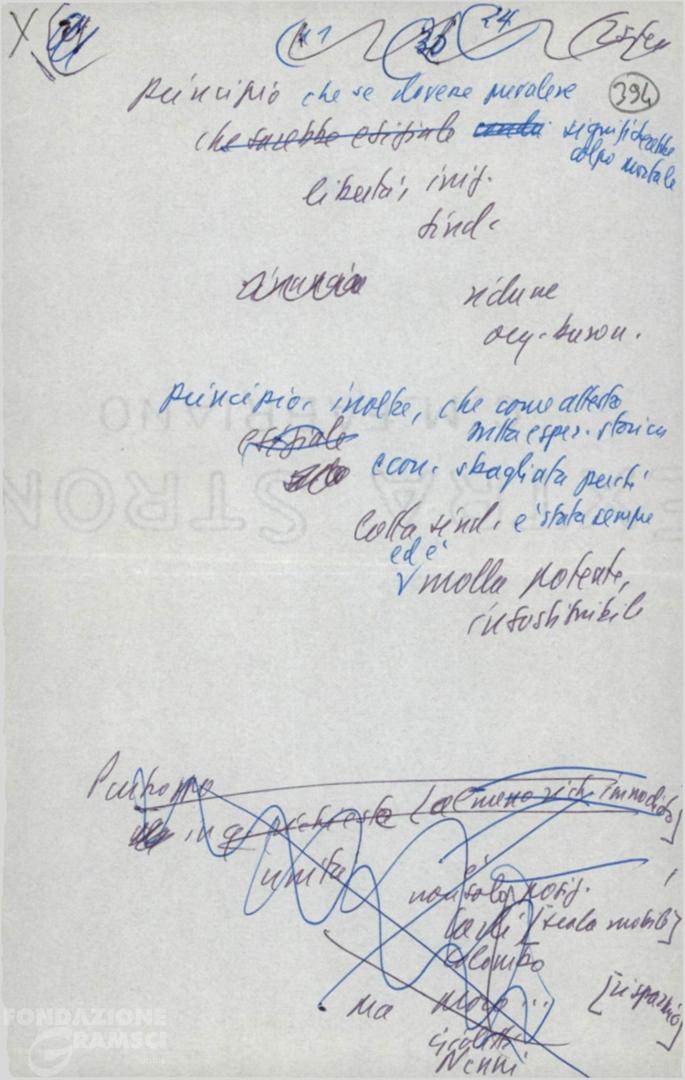 X 41 30 24
principio che se dovesse prevalere 394
che sarebbe esiziale significherebbe
colpo mortale
libertà, iniz.
sind.
rinuncia ridurre
ocq. buson.
principio, inoltre, che come attesta
esiziale tutta esper. storica
econ. sbagliata perché
lotta sind. è stata sempre
ed è
molla potente,
insostituibile
Purtroppo
in q richiesta (almeno rich. immediata)
unità è
non solo posiz.
[scala mobile]
Colombo
ma Moro... [risparmio]
Giolitti
Nenni
FONDAZIONE
GRAMSCI